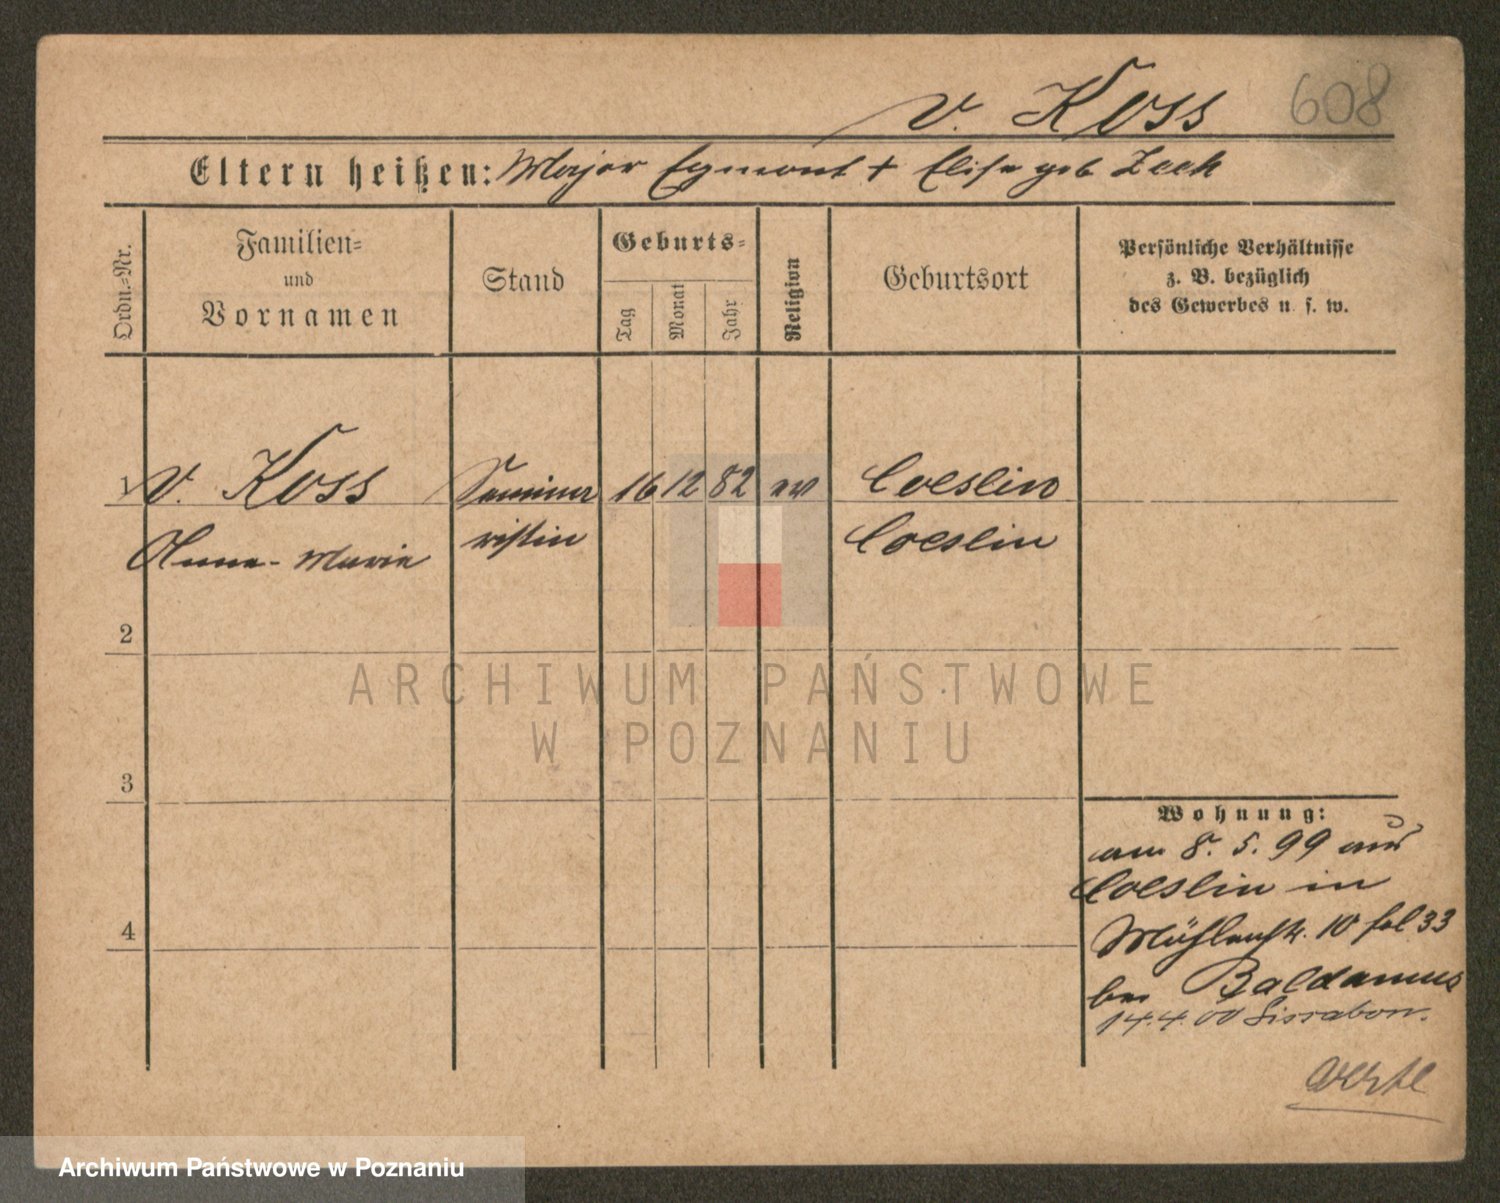 v. Koss 608
Eltern heißen: Major Egmont + Elise geb Zech
Ordn.-Nr.
Familien-
und
Vornamen
Stand
Geburts-
Tag
Monat
Jahr
Religion
Geburtsort
Persönliche Verhältnisse
z. B. bezüglich
des Gewerbes u. s. w.
1 v. Koss Seminar 16 12 82 ev Coeslin
Anna-Marie ristin Coeslin
2
3
4
Wohnung:
am 8. 5. 99 aus
Coeslin in
Mühlenstr. 10 fol 33
bei Baldamus
14.4.00 Lissabon.
ARCHIWUM PAŃSTWOWE
W POZNANIU
Archiwum Państwowe w Poznaniu